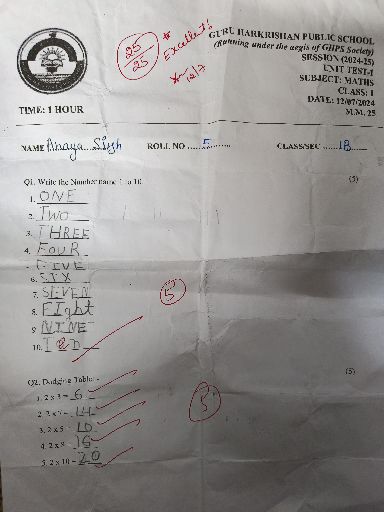 25/25
* Excellent!
12/7
GURU HARKRISHAN PUBLIC SCHOOL
(Running under the aegis of GHPS Society)
SESSION (2024-25)
UNIT TEST-1
SUBJECT: MATHS
CLASS: 1
DATE: 12/07/2024
TIME: 1 HOUR M.M. 25
NAME Anaya Singh ROLL NO ....5........ CLASS/SEC .....1B.....
Q1. Write the Number name 1 to 10. (5)
1. ONE
2. Two
3. THREE
4. FOUR
FIVE
6. SIX
7. SEVEN
8. EIght
9. NINE
10.
5
Q2. Dodging Table:- (5)
1. 2 x 3 = 6
2. 2 x 7 = 14
3. 2 x 5 = 10
4. 2 x 8 = 16
5. 2 x 10 = 20
5